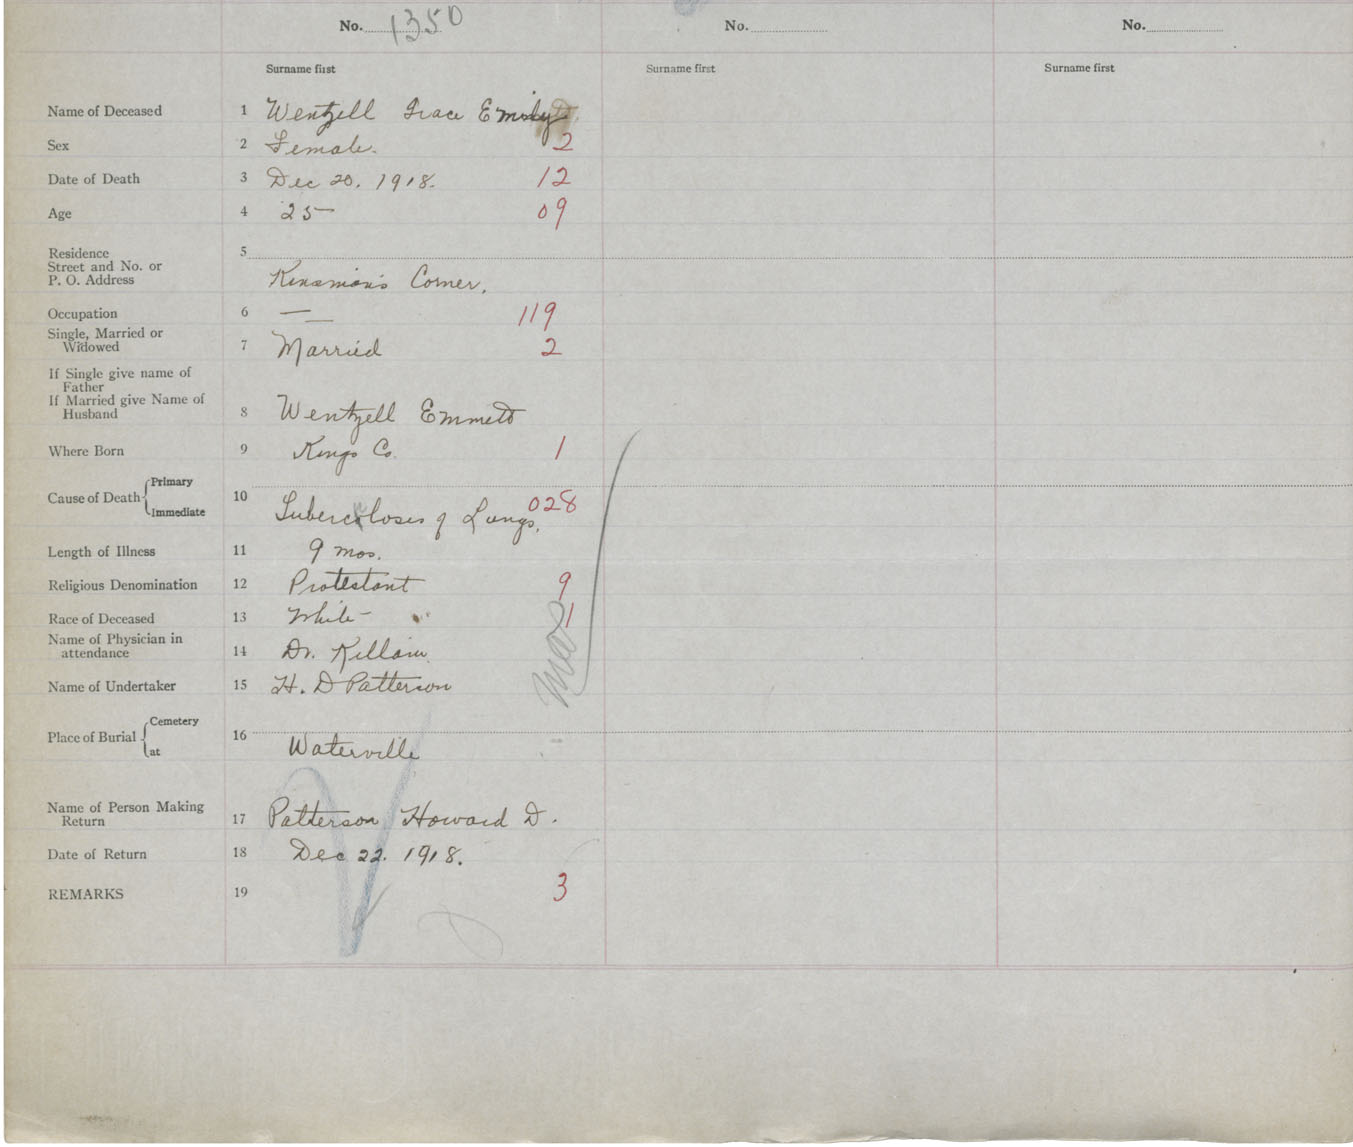 No. 1350 No. No.
Surname first Surname first Surname first
Name of Deceased 1 Wentzell Grace Emily
Sex 2 Female. 2
Date of Death 3 Dec 20. 1918. 12
Age 4 25 09
Residence 5
Street and No. or
P. O. Address Kinsman's Corner.
Occupation 6 — 119
Single, Married or
Widowed 7 Married 2
If Single give name of
Father
If Married give Name of
Husband 8 Wentzell Emmett
Where Born 9 Kings Co. 1
Cause of Death Primary
Immediate 10 Tuberculosis of Lungs. 028
Length of Illness 11 9 mos.
Religious Denomination 12 Protestant 9
Race of Deceased 13 White 1
Name of Physician in
attendance 14 Dr. Killam
Name of Undertaker 15 H. D Patterson
Place of Burial Cemetery
at 16 Waterville
Name of Person Making
Return 17 Patterson Howard D.
Date of Return 18 Dec 22. 1918.
REMARKS 19 3